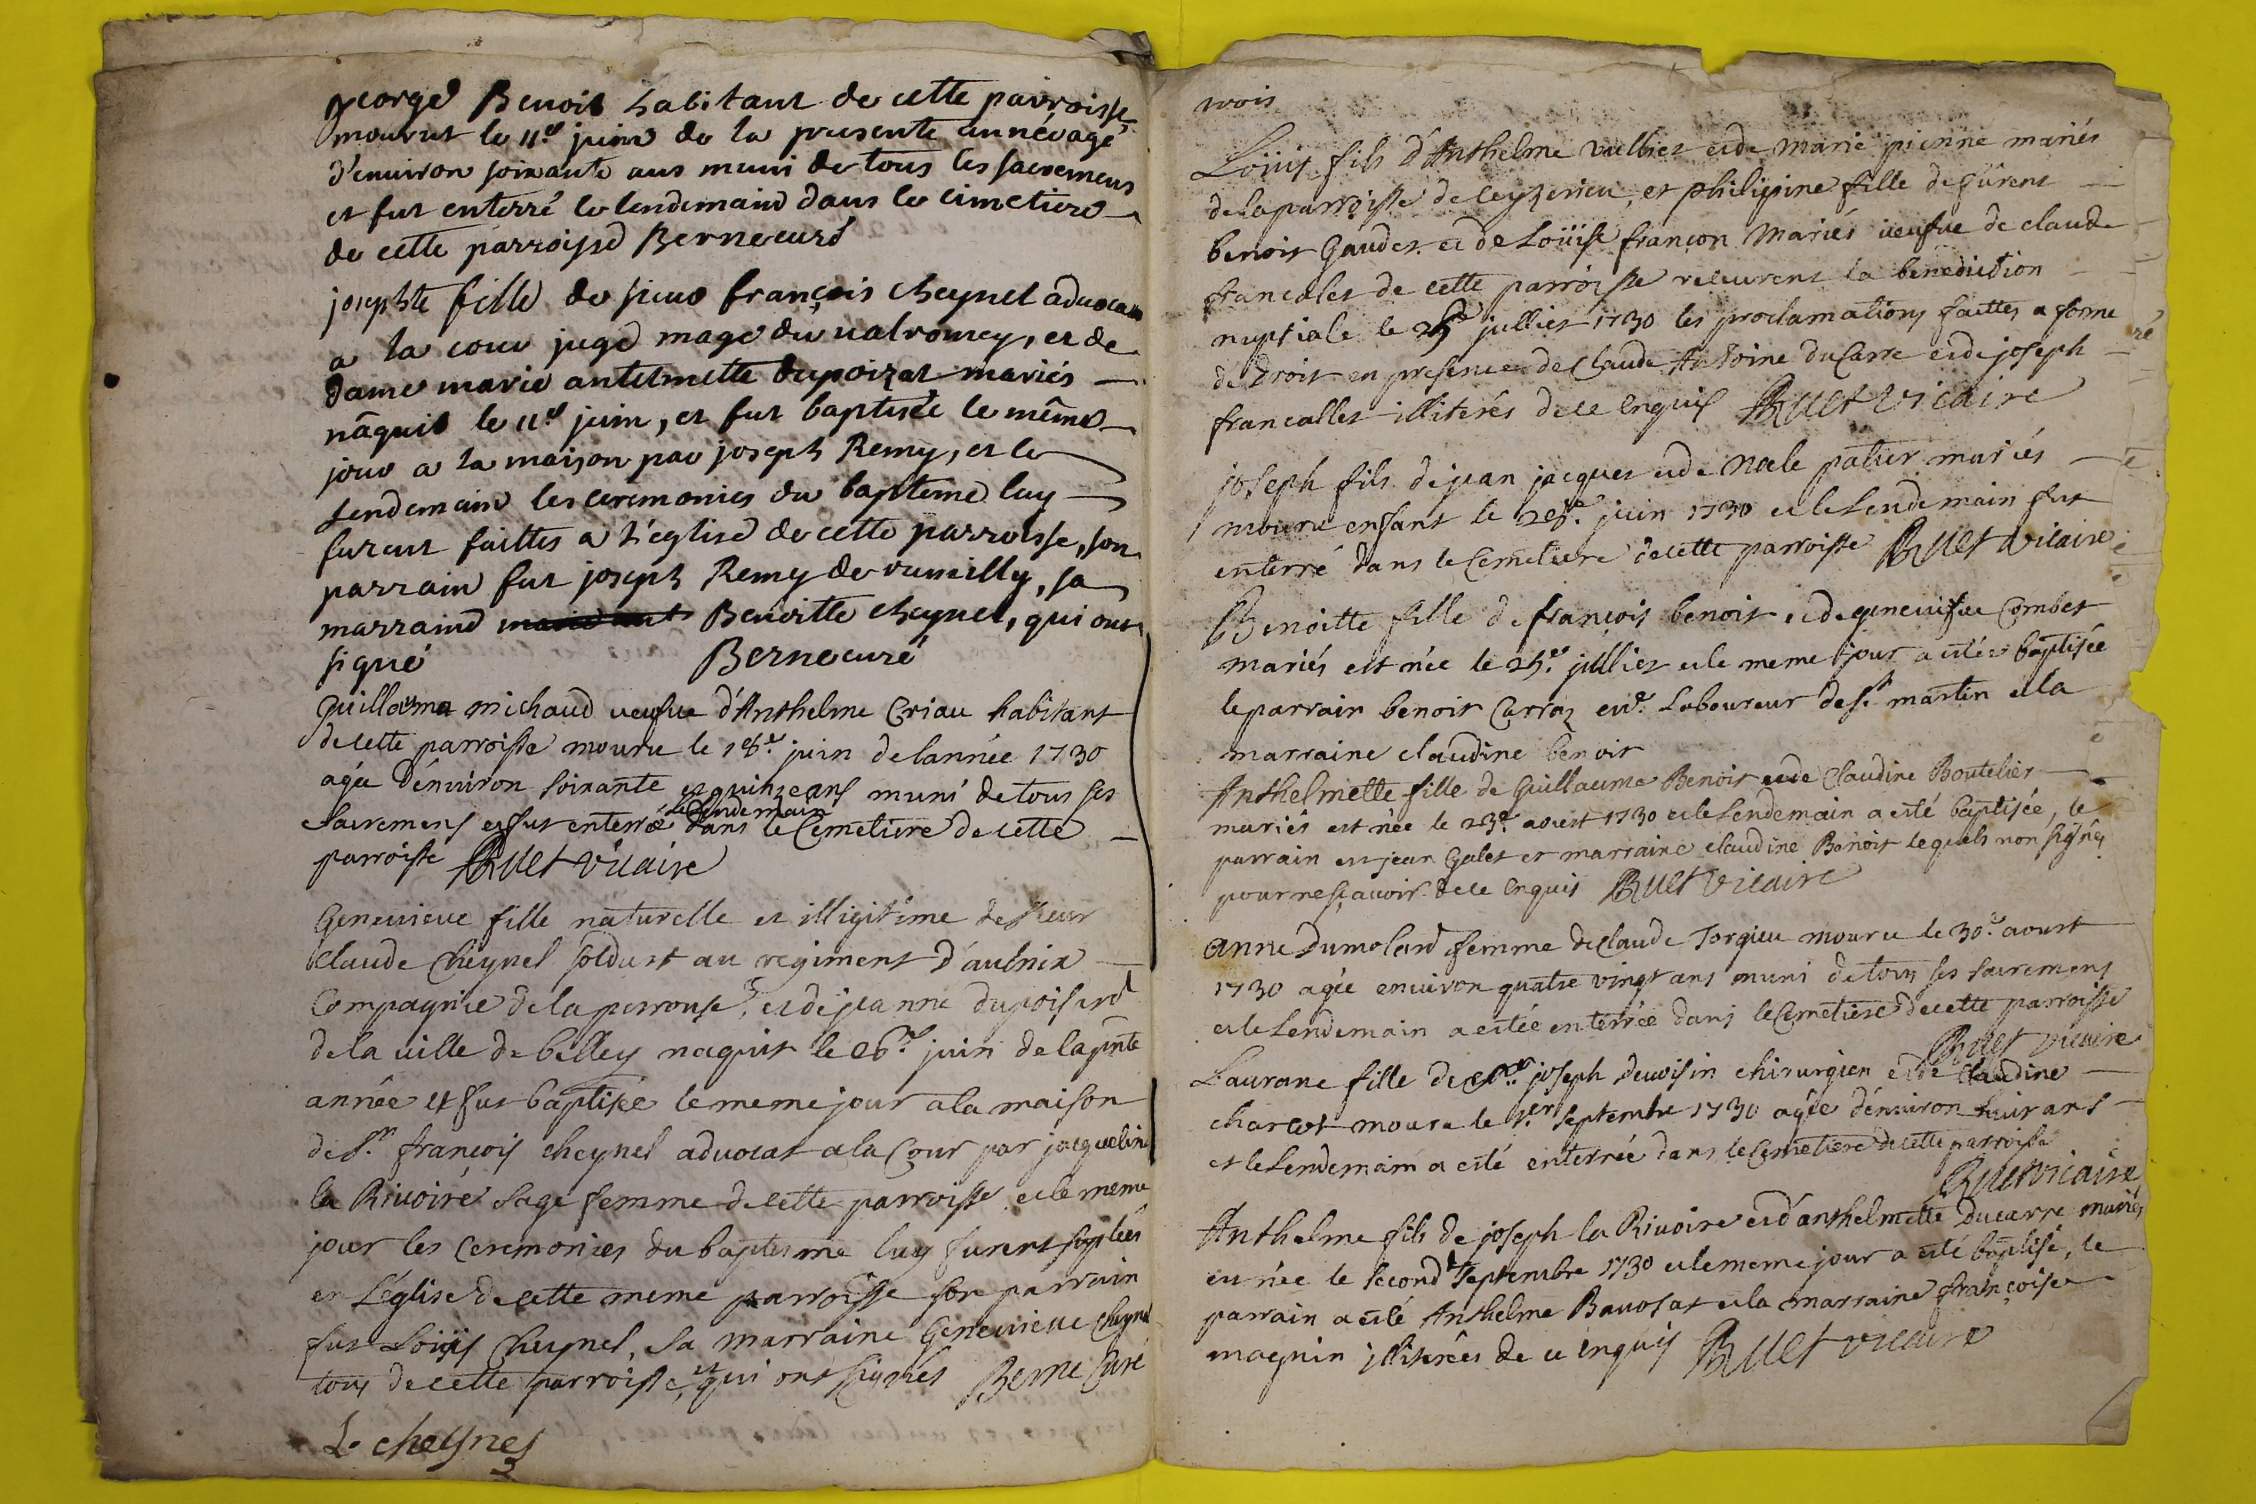 george Benoit habitant de cette parroisse
mourut le 11e juin de la presente année agé
d'environ soixante ans muni de tous les sacremens
et fut enterré le lendemain dans le cimetiere
de cette parroisse Berne curé
josephte fille de sieur françois cheynel advocat
a la cour juge mage du valromey, et de
dame marie antelmette dupoizat mariés
nâquit le 11e juin, et fut baptisée le même
jour a la maison par joseph Remy, et le
lendemain les ceremonies du bapteme luy
furent faittes a l'eglise de cette parroisse, son
parrain fut joseph Remy de rumilly, sa
marraine Benoitte cheynel, qui ont
signé Berne curé
Guillauma michaud veufve d'Anthelme Criau habitant
de cette parroisse mouru le 18e juin de lannée 1730
agée d'environ soixante et quinze ans muni de tous ses
le lendemain
sacremens et fut enterré dans le Cemetiere de cette
parroisse Ruet vicaire
Genevieve fille naturelle et illigitime de sieur
claude Cheynel soldat au regiment d'aulnix
Compagnie de la perrouse, et de jeanne dupoisard
de la ville de belley naquit le 26e juin de la pnte
année et fut baptisée le meme jour a la maison
de sr. françois cheynel advocat a la Cour par jacqueline
la Rivoire sage femme de cette parroisse et le meme
jour les Ceremonies du baptesme luy furent supleés
en L'église de cette meme parroisse son parrain
fut Loüis Cheynel, sa marraine Genevieve Cheynel
tous de cette parroisse, et qui ont signés Berne Curé
L. cheÿnel
trois
Loüis fils d'Anthelme vulliet et de marie pienne mariés
de la parroisse de ceyzerieu, et philipine fille de fûrent
benoit Gaudet et de Loüise françon Mariés veufve de claude
francalet de cette parroisse receurent la benediction
nuptiale le juilliet 1730 les proclamations faittes a forme
de Droit en presence de Claude Antoine Du Carre et de joseph
francallet illiterés de ce enquis Ruet vicaire
joseph fils de jean jacques et de Noele patur mariés
mouru enfant le juin 1730 et le Lendemain fut
enterré dans le Cemetiere de cette parroisse Ruet vicaire
Benoitte fille de françois benoit, et de genevifve Combet
mariés est née le 25e. juilliet et le meme jour a estée baptisée
le parrain benoit Carraz Laboureur de st. martin et la
marraine claudine benoit
Anthelmette fille de Guillaume Benoit et de Claudine Boutelier
mariés est née le 23e aoust 1730 et le Lendemain a esté baptisée, le
parrain est jean Galet et marraine claudine Benoit lequels non signéz
pour ne sçavoir de ce enquis Ruet vicaire
Anne Dumolard femme de Claude Torgieu mouru le 30e aoust
1730 agée environ quatre vingt ans muni de tous ses sacremens
et le Lendemain a estée enterrée dans le Cemetiere de cette parroisse
Ruet vicaire
Laurane fille de joseph devoisin chirurgien et de Claudine
charcot mouru le 1.er septembre 1730 agée d'environ huit ans
et le Lendemain a esté enterrée dans le Cemetiere de cette parroisse
Ruet vicaire
Anthelme fils de joseph la Rivoire et d'anthelmette Ducarre mariés
est née le second septembre 1730 et le meme jour a esté baptisé, le
parrain a esté Anthelme Bavosat et la marraine françoise
magnin illiterées de ce enquis Ruet vicaire